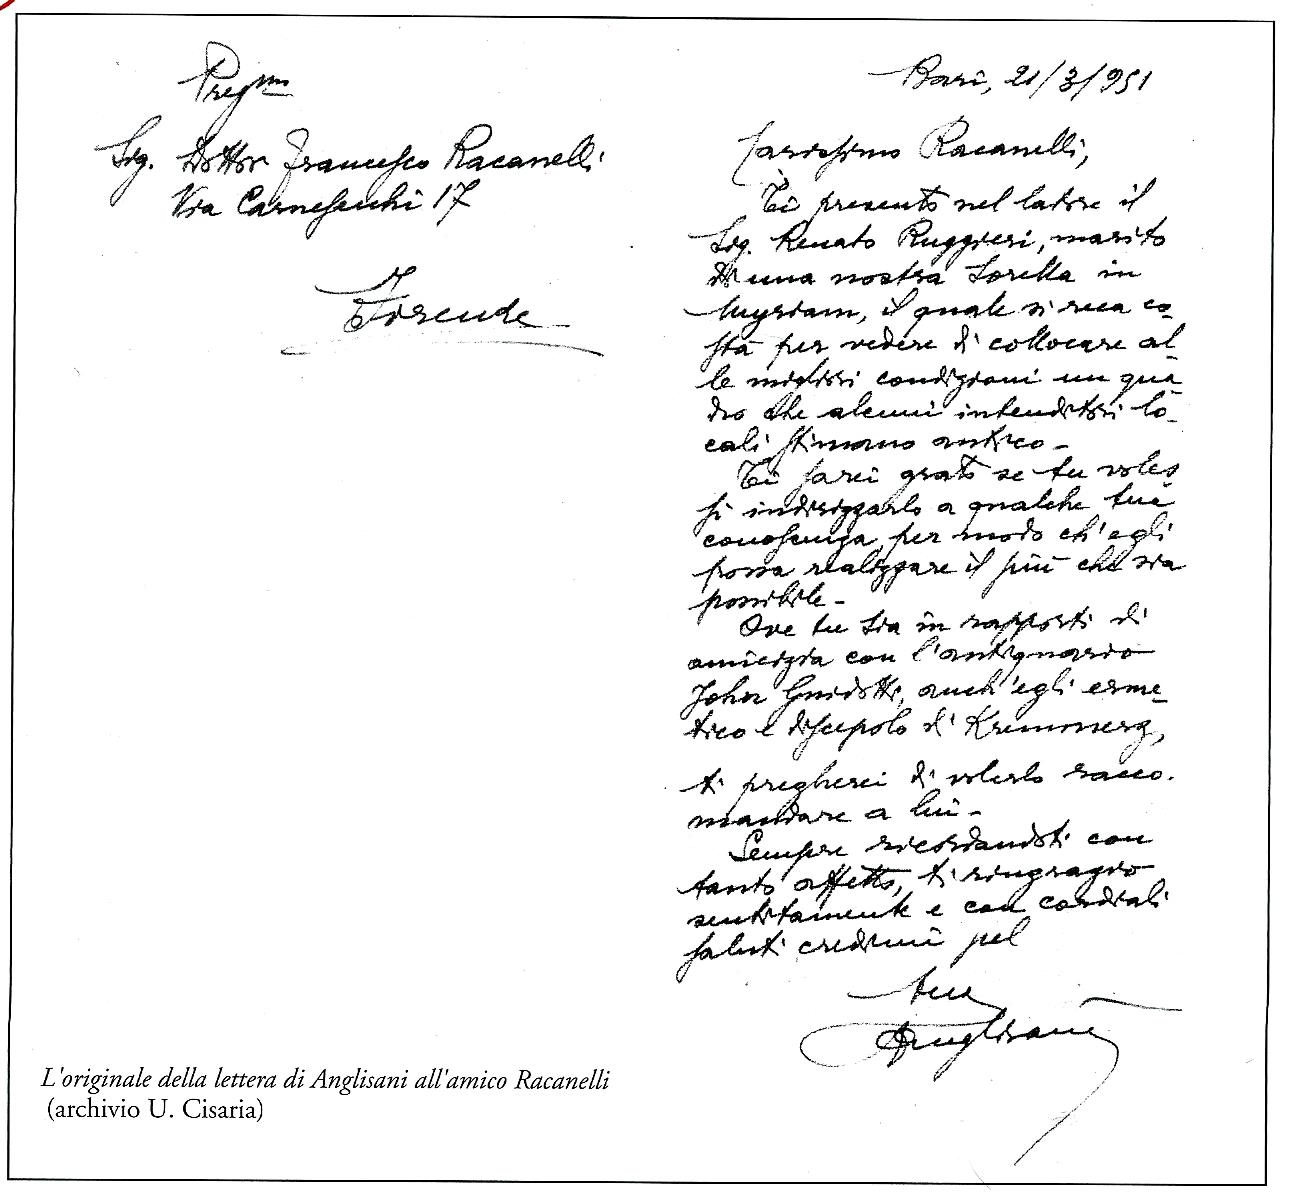 Preg.mo
Sig. Dottor Francesco Racanelli
Via Carnesecchi 17
Firenze
Bari, 21/3/951
Carissimo Racanelli,
Ti presento nel latore il
Sig. Renato Ruggieri, marito
di una nostra Sorella in
Myriam, il quale si reca co-
stà per vedere di collocare al-
le migliori condizioni un qua-
dro che alcuni intenditori lo-
cali stimano antico -
Ti sarei grato se tu voles
si indirizzarlo a qualche tua
conoscenza per modo ch'egli
possa realizzare il più che sia
possibile -
Ove tu sia in rapporti di
amicizia con l'antiquario
John Guidotti, anch'egli erme-
tico e discepolo di Kremmerz,
ti pregherei di volerlo racco-
mandare a lui -
Sempre ricordandoti con
tanto affetto, ti ringrazio
sentitamente e con cordiali
saluti credimi pel
tuo
Anglisani
L'originale della lettera di Anglisani all'amico Racanelli
(archivio U. Cisaria)